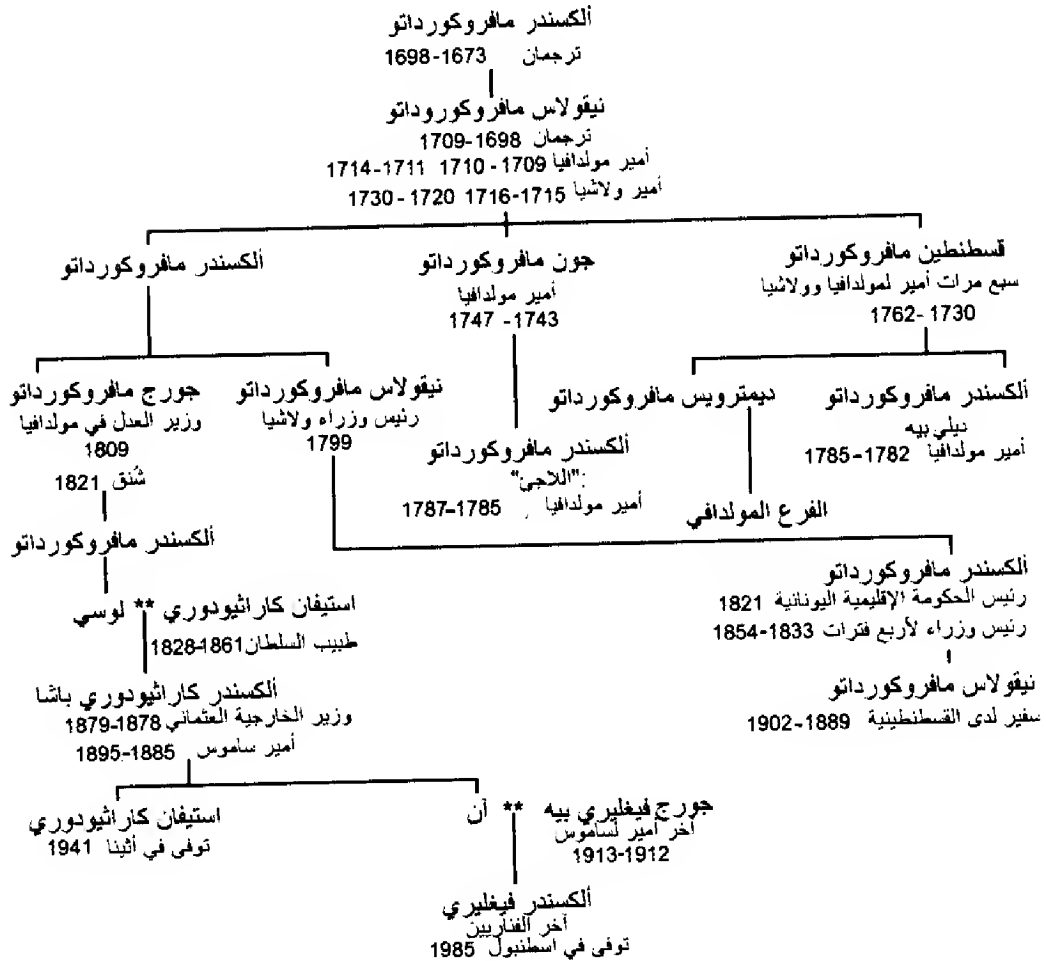 ألكسندر مافروكورداتو
ترجمان 1673-1698
نيقولاس مافروكوروداتو
ترجمان 1698-1709
أمير مولدافيا 1709-1710 1711-1714
أمير ولاشيا 1715-1716 1720-1730
قسطنطين مافروكورداتو
سبع مرات أمير لمولدافيا وولاشيا
1730-1762
جون مافروكورداتو
أمير مولدافيا
1743-1747
ألكسندر مافروكورداتو
ألكسندر مافروكورداتو
ديلي بيه
أمير مولدافيا 1782-1785
ديمترويس مافروكورداتو
الفرع المولدافي
ألكسندر مافروكورداتو
"اللاجئ":
أمير مولدافيا 1785-1787
نيقولاس مافروكورداتو
رئيس وزراء ولاشيا
1799
جورج مافروكورداتو
وزير العدل في مولدافيا
1809
شُنق 1821
ألكسندر مافروكورداتو
ألكسندر مافروكورداتو
رئيس الحكومة الإقليمية اليونانية 1821
رئيس وزراء لأربع فترات 1833-1854
نيقولاس مافروكورداتو
سفير لدى القسطنطينية 1889-1902
استيفان كاراثيودوري ** لوسي
طبيب السلطان 1828-1861
ألكسندر كاراثيودوري باشا
وزير الخارجية العثماني 1878-1879
أمير ساموس 1885-1895
جورج فيغليري بيه ** آن
آخر أمير لساموس
1912-1913
استيفان كاراثيودوري
توفى في أثينا 1941
ألكسندر فيغليري
آخر الفناريين
توفى في اسطنبول 1985